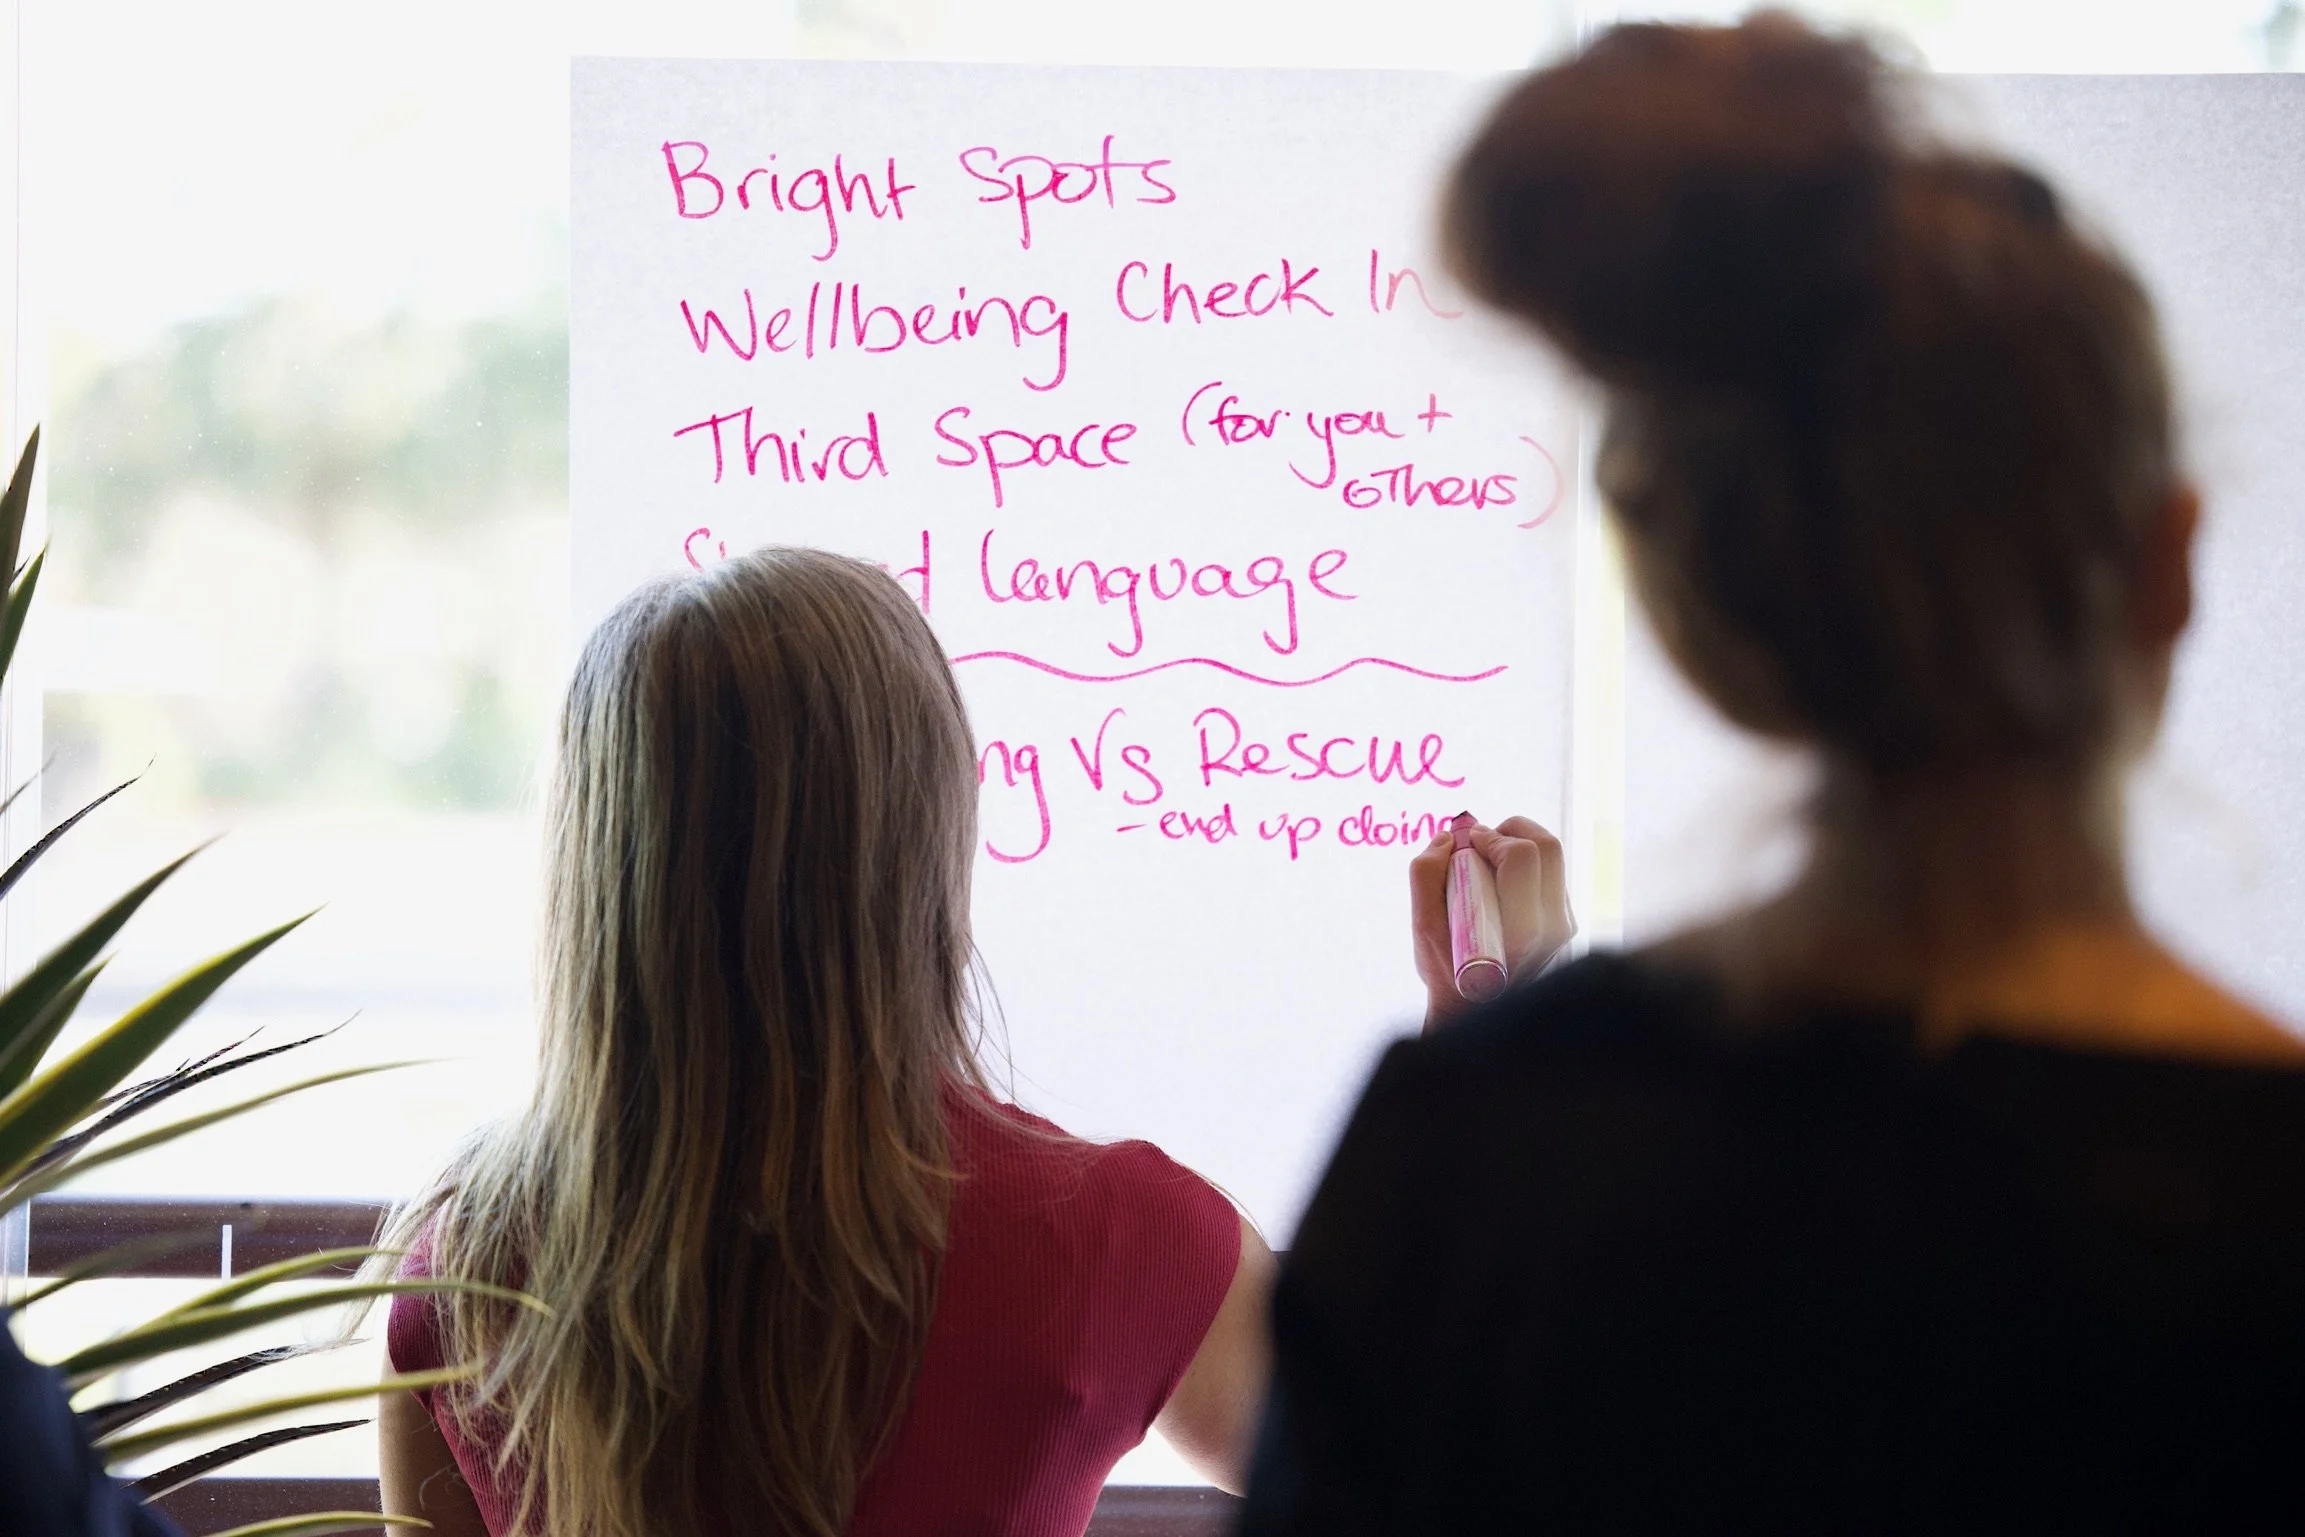 Bright Spots
Wellbeing Check In
Third Space (for you +
others)
language
Vs Rescue
- end up doing